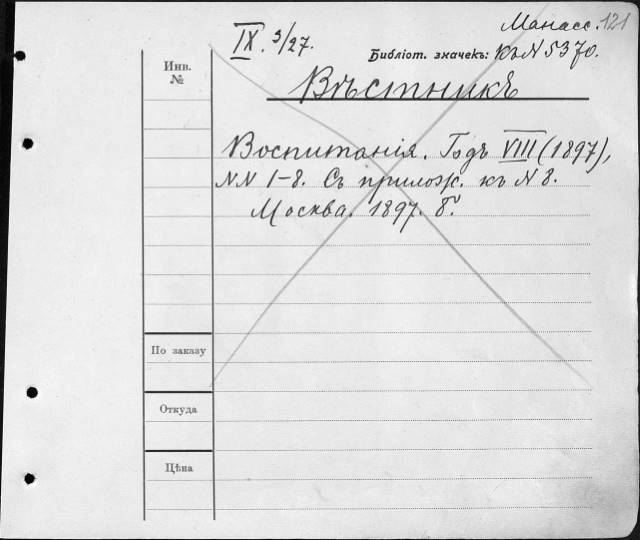 Манасс. 121
IX. 3/27.
Библіот. значекъ: къ N 5370.
Инв.
№
Вѣстникъ
Воспитанія. Годъ VIII (1897),
NN 1-8. Съ прилож. къ N 8.
Москва. 1897. 8.
По заказу
Откуда
Цѣна